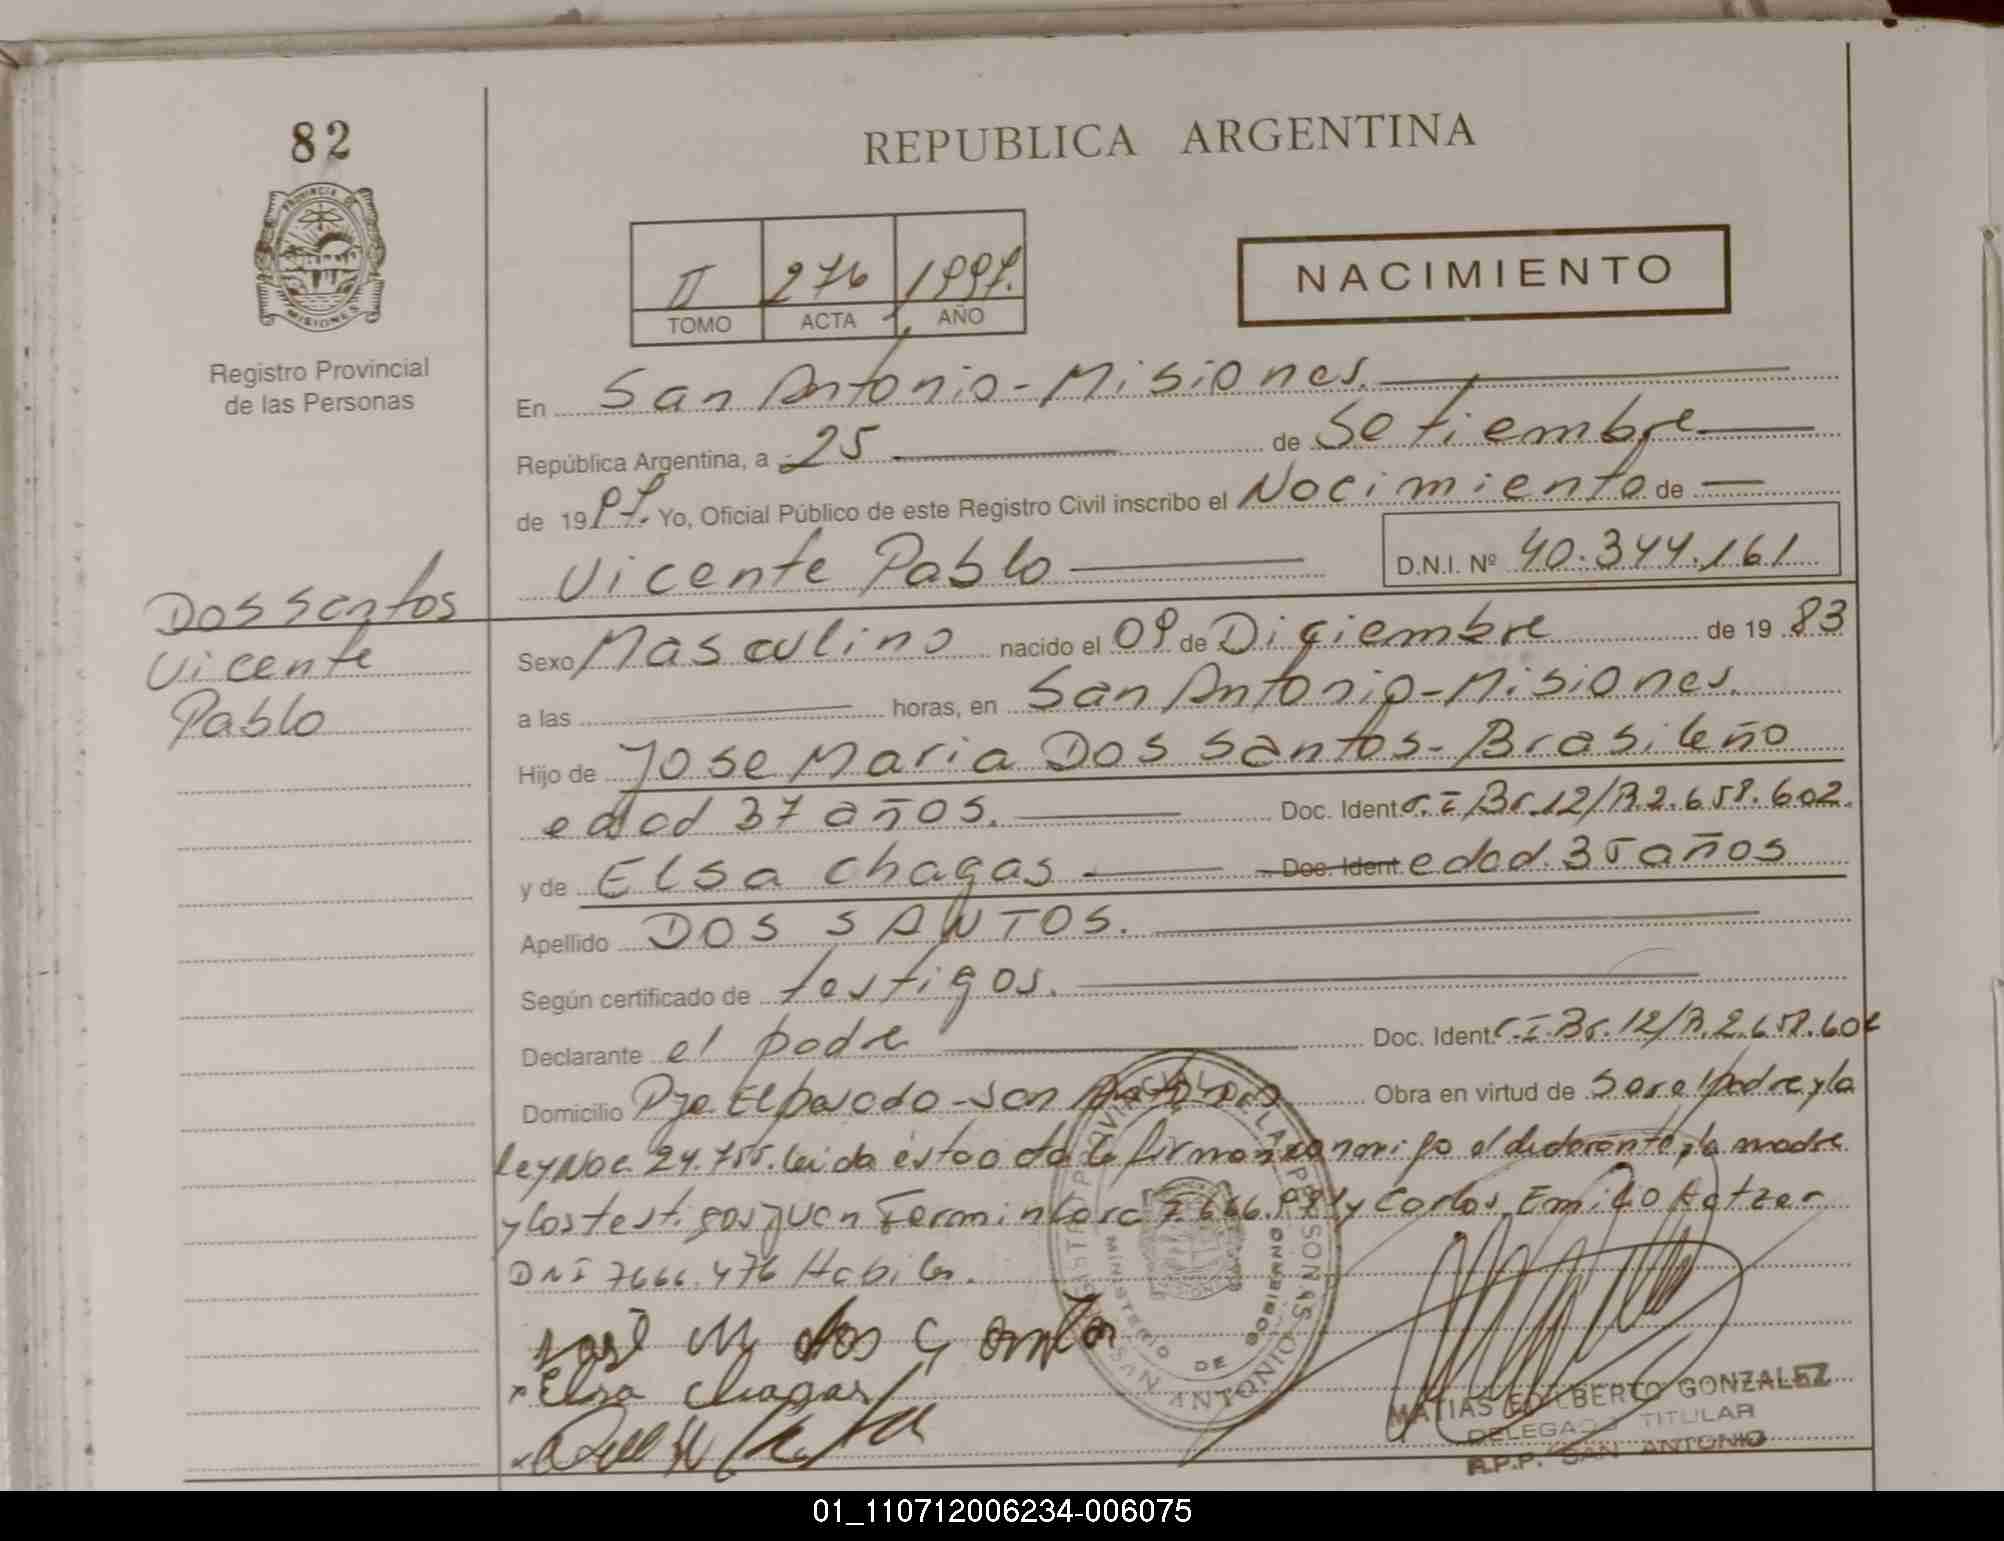 82
REPUBLICA ARGENTINA
PROVINCIA DE
MISIONES
Registro Provincial
de las Personas
II 276 1997.
TOMO ACTA AÑO
NACIMIENTO
En San Antonio - Misiones.
República Argentina, a 25 de Setiembre
de 1997. Yo, Oficial Público de este Registro Civil inscribo el Nacimiento de
Vicente Pablo D.N.I. Nº 40.344.161
Dos santos
Vicente
Pablo
Sexo Masculino nacido el 09 de Diciembre de 19 83
a las horas, en San Antonio - Misiones.
Hijo de Jose Maria Dos santos - Brasileño
edad 37 años. Doc. Ident C.I Br. 12/R.2.658.602.
y de Elsa Chagas Doc. Ident. edad. 35 años
Apellido DOS SANTOS.
Según certificado de testigos.
Declarante el padre Doc. Ident. C.I. Br. 12/R.2.658.602
Domicilio Pje El parado - San Antonio Obra en virtud de ser el padre y la
ley Nac 24.755. leida esta acta la firman conmigo el declarante, la madre
y los testigos Juan Fermin 7.666. y Carlos Emilio
DNI 7666.476 Habiles.
José M dos Santos
x Elsa Chagas
REGISTRO PROVINCIAL DE LAS PERSONAS
MINISTERIO DE GOBIERNO
SAN ANTONIO
MATIAS EDILBERTO GONZALEZ
DELEGADO TITULAR
R.P.P. SAN ANTONIO
01_110712006234-006075